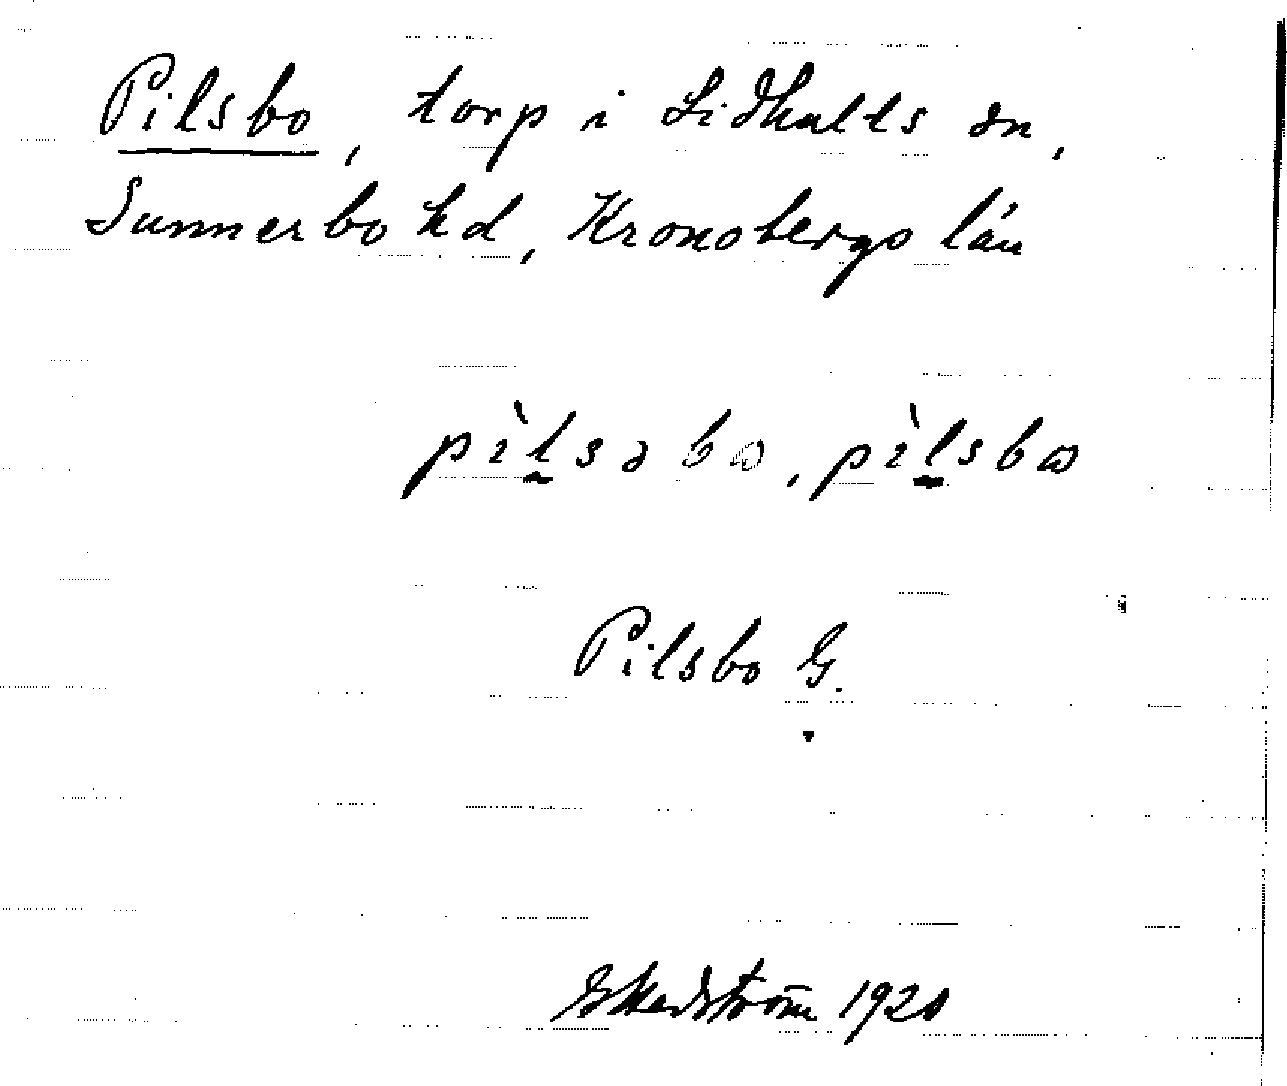 Pilsbo, torp i Lidhults sn,
Sunnerbo hd, Kronobergs län
pìlsəbɷ, pìlsbɷ
Pilsbo G.
Ekedström 1920